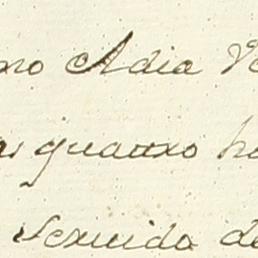 no Adia
as quatro ho
Servido de